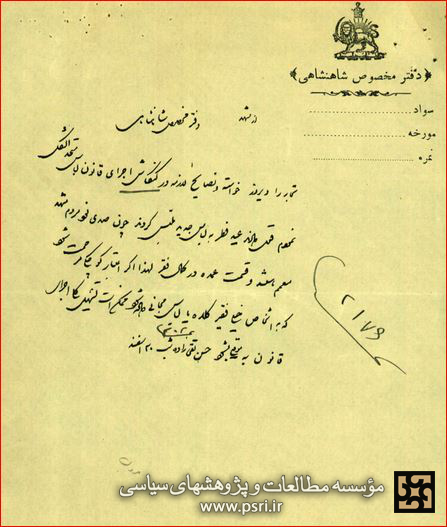 ﴿دفتر مخصوص شاهنشاهی﴾
سواد
مورخه
نمره
از مشهد
دفتر مخصوص شاهنشاهی
را دیروز خواسته و نصایح لازمه در اجرای قانون لباس متحدالشکل
نمودم قبل از عید فطر به لباس جدید ملبس گردند چون صدی نود مردم مشهد
معمم هستند و قسمت عمده در کمال فقر لهذا اگر اعتبار کوچکی مرحمت شود
که به اشخاص خیلی فقیر کلاه یا لباس مجانی داده شود ممکن است اجرای
قانون به شود حسن تقی زاده شب ۲۰ اسفند
۲۱۷۶
مؤسسه مطالعات و پژوهشهای سیاسی
www.psri.ir